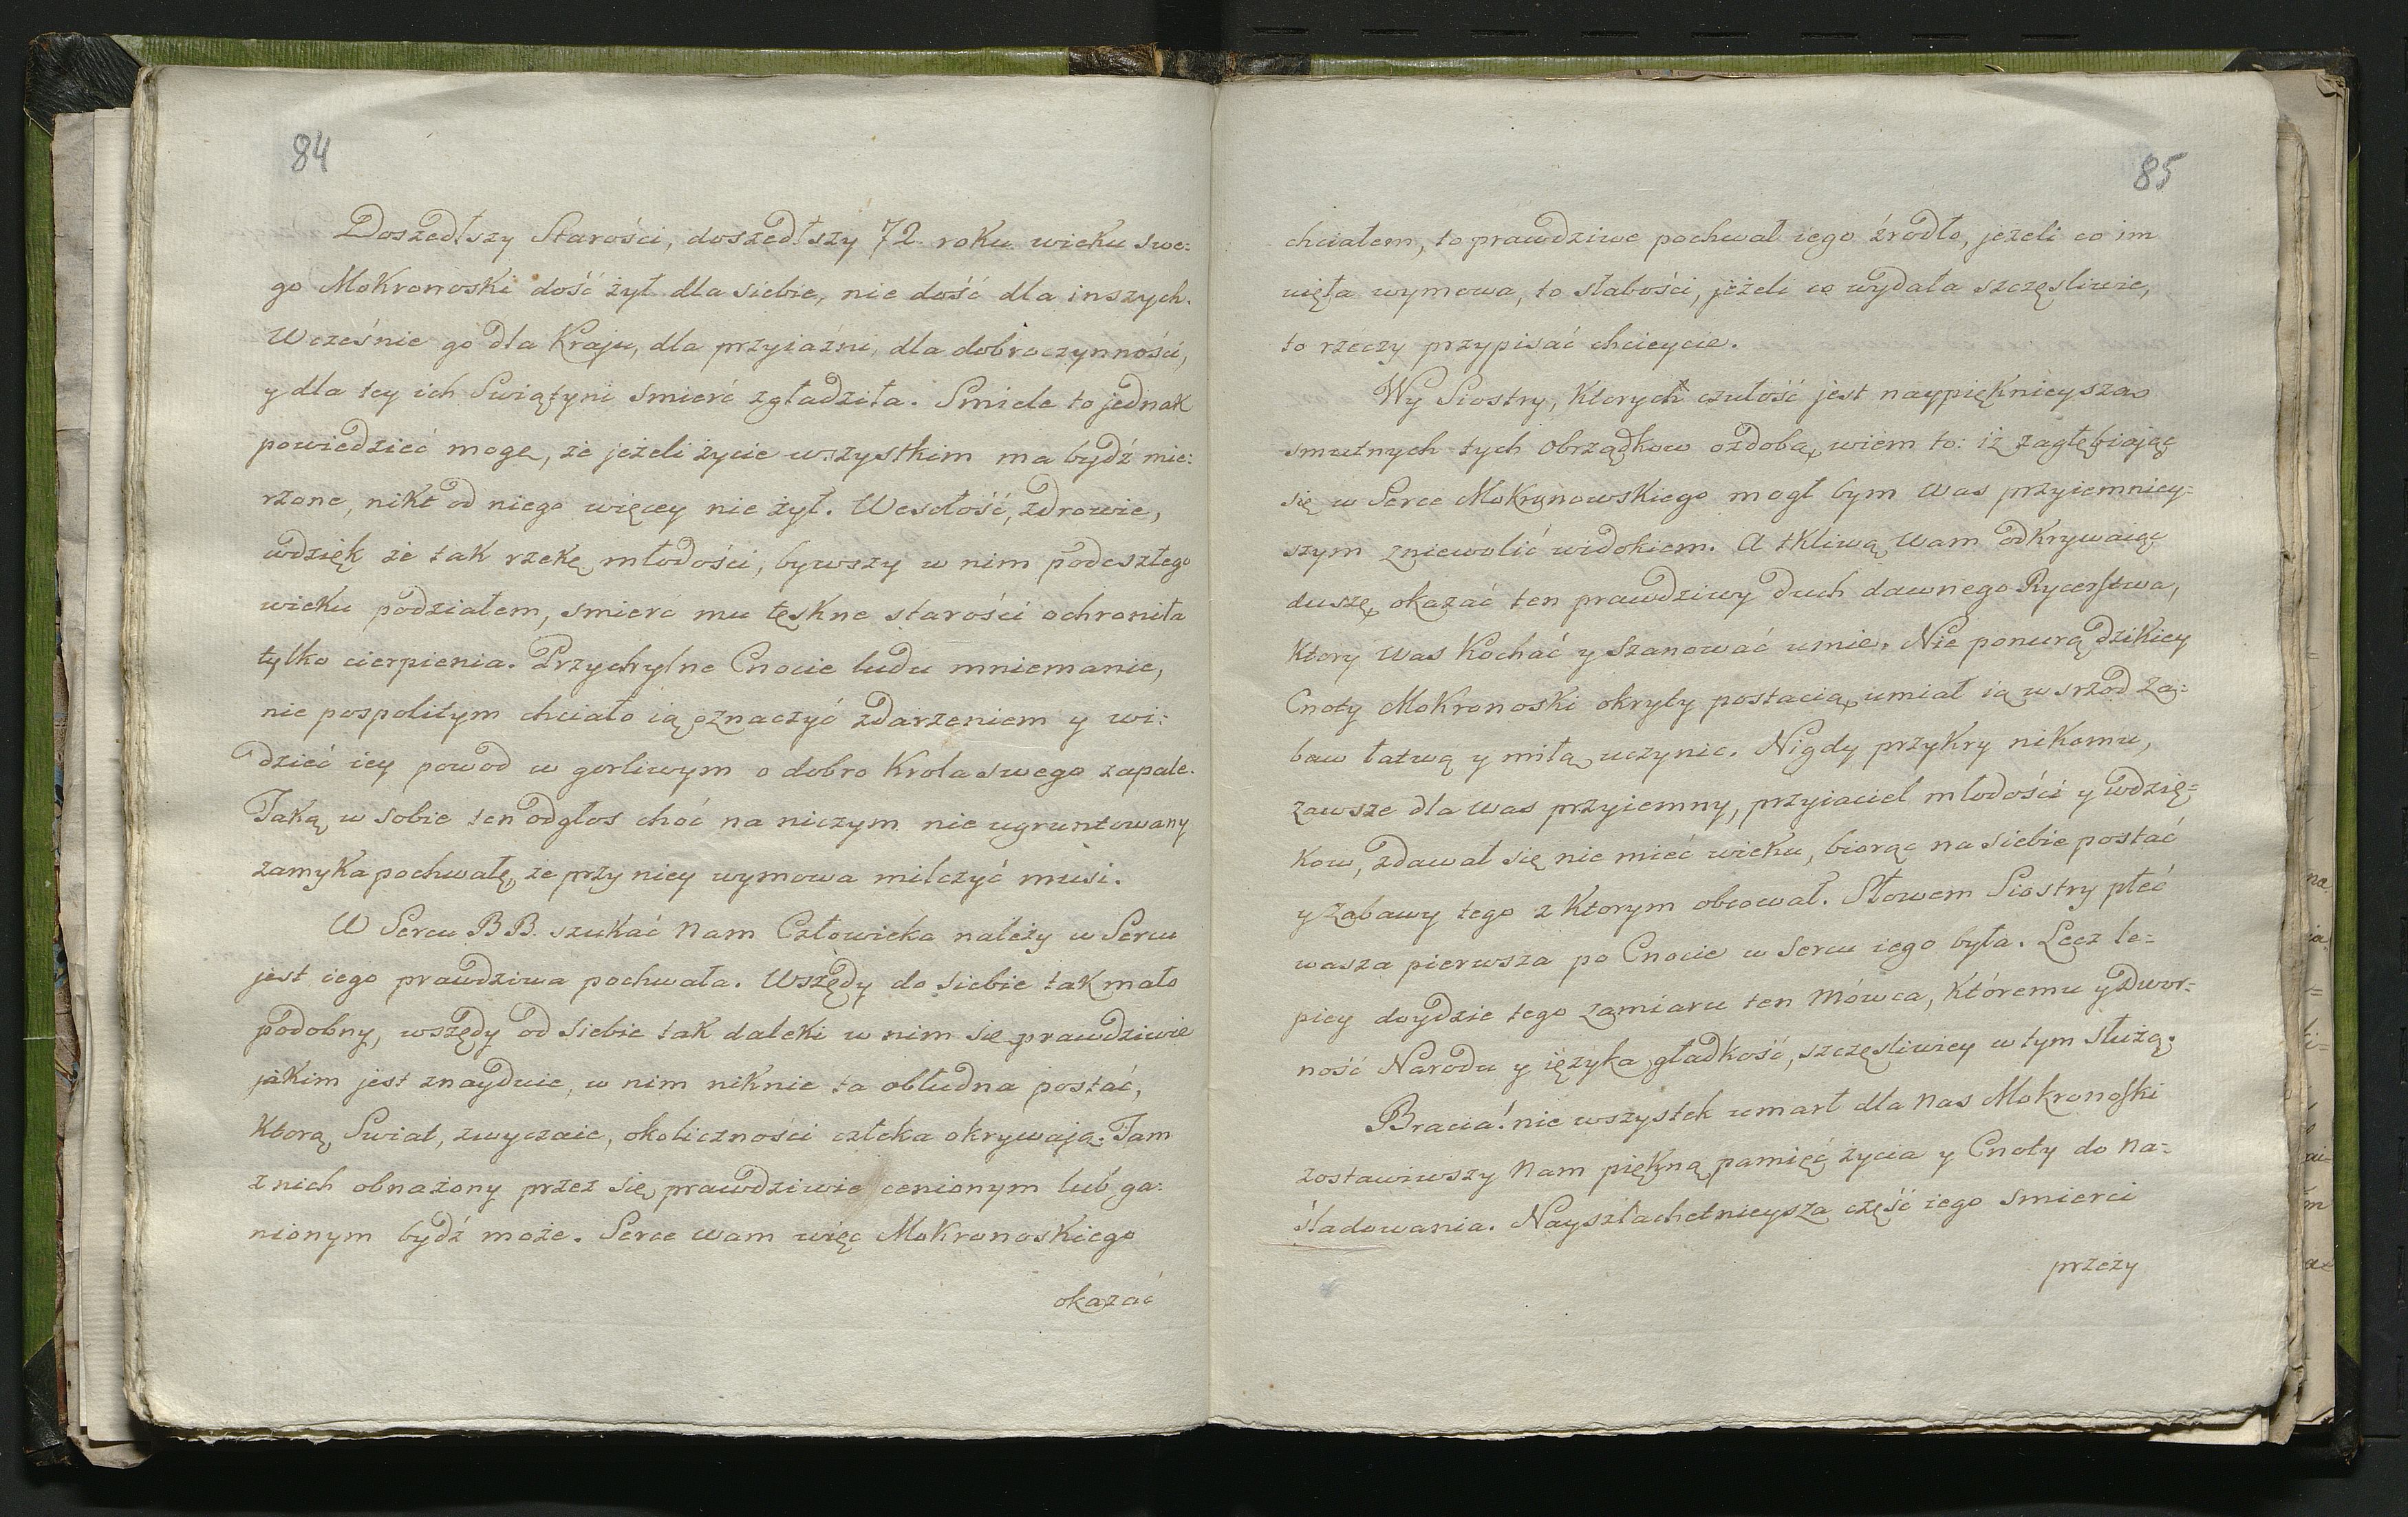 84
Doszedłszy Starości, doszedłszy 72 roku wieku swe:
go Mokronoski dość żył dla siebie, nie dość dla inszych.
Wcześnie go dla Kraju, dla przyiaźni, dla dobroczynności,
y dla tey ich Swiątyni smierć zgładziła. Smiele to jednak
powiedzieć mogę, że jeżeli życie wszystkim ma bydź mie:
rzone, nikt od niego więcey nie żył. Wesołość, zdrowie,
wdzięk że tak rzekę młodości, bywszy w nim podeszłego
wieku podziałem, smierć mu tęskne starości ochroniła
tylko cierpienia. Przychylne Cnocie ludu mniemanie,
nie pospolitym chciało ią oznaczyć zdarzeniem y wi:
dzieć iey powod w gorliwym o dobro Krola swego zapale.
Taką w sobie ten odgłos choć na niczym nie ugruntowany
zamyka pochwałę, że przy niey wymowa milczyć musi.
W Sercu BB. szukać nam Człowieka należy w Sercu
jest iego prawdziwa pochwała. Wszędy do siebie tak mało
podobny, wszędy od siebie tak daleki w nim się prawdziwie
jakim jest znayduie, w nim niknie ta obłudna postać,
Ktorą Swiat, zwyczaie, okoliczności człeka okrywają. Tam
z nich obnażony przez się prawdziwie cenionym lub ga:
nionym bydź może. Serce wam więc Mokronoskiego
okazać
85
chciałem, to prawdziwe pochwał iego źrodło, jeżeli co im
uięła wymowa, to słabości, jeżeli co wydała szczęsliwie,
to rzeczy przypisać chcieycie.
Wy Siostry, Ktorych czułość jest naypięknieysza
smutnych tych obrządkow ozdobą, wiem to: iż zagłębiając
się w Serce Mokronowskiego mogł bym Was przyiemniey:
szym zniewolić widokiem. A tkliwą Wam odkrywaiąc
duszę, okazać ten prawdziwy duch dawnego Rycerstwa,
Ktory Was Kochać y szanować umie. Nie ponurą dzikiey
Cnoty Mokronoski okryty postacią, umiał ią w srzod za:
baw łatwą y miłą uczynic. Nigdy przykry nikomu,
zawsze dla Was przyiemny, przyiaciel mlodości y wdzię:
kow, zdawał się nie mieć wieku, biorąc na siebie postać
y zabawy tego z Ktorym obcował. Słowem Siostry płeć
wasza pierwsza po Cnocie w Sercu iego była. Lecz le=
piey doydzie tego zamiaru ten Mówca, któremu y Dwor=
ność Narodu y ięzyka gładkość, szczęsliwiey w tym służą.
Bracia! nie wszystek umarł dla Nas Mokronoski
zostawiwszy Nam piękną pamięć życia y Cnoty do na=
śladowania. Nayszlachetnieysza część iego smierci
przeży